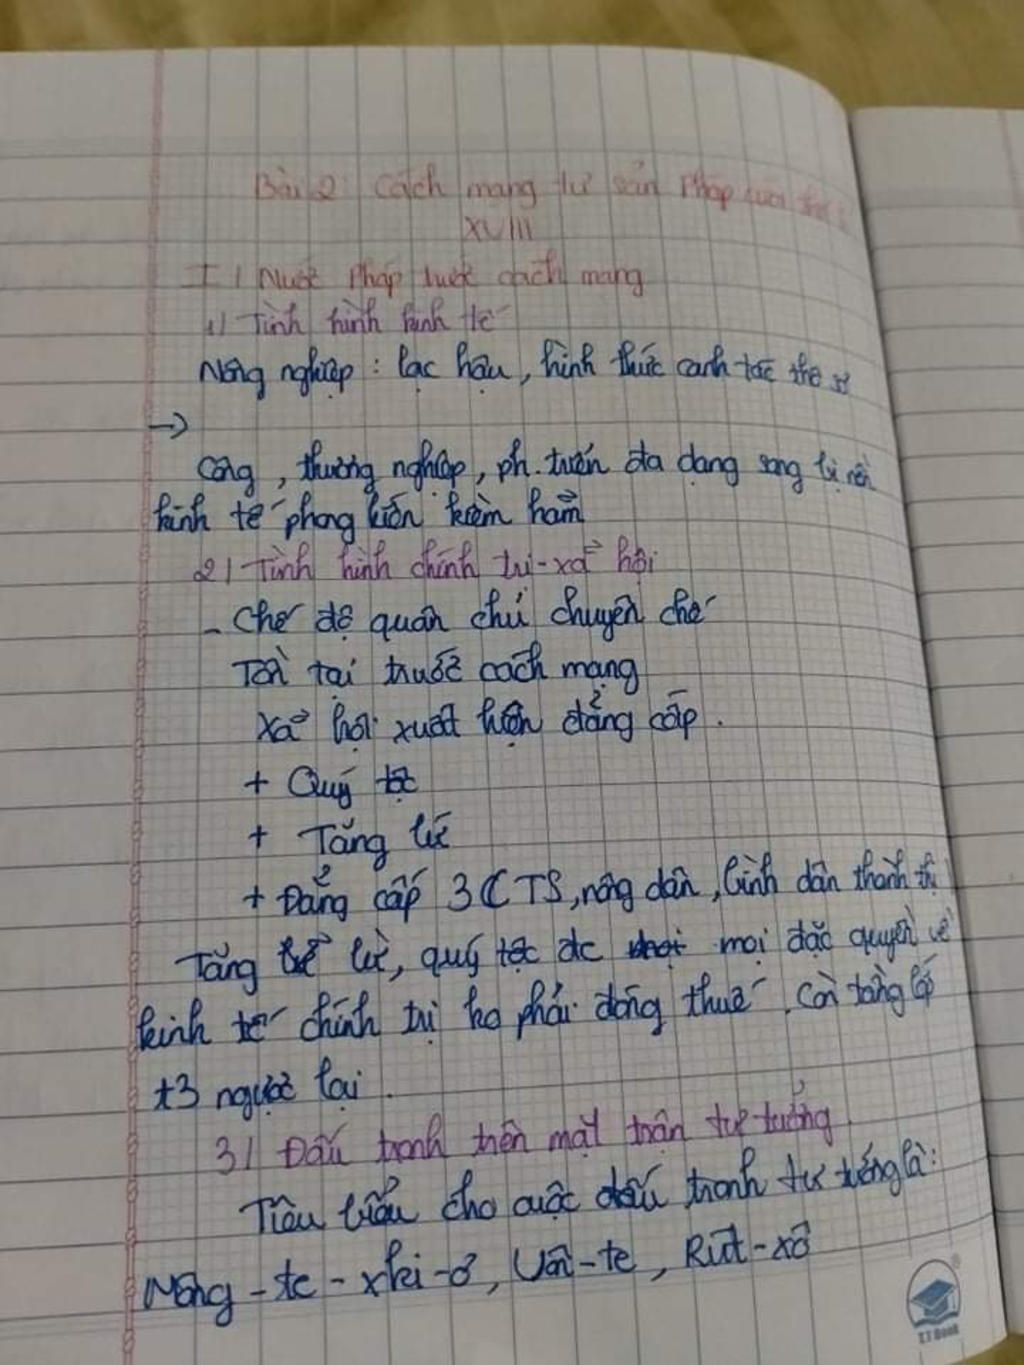 Bài 2: Cách mạng tư sản Pháp cuối thế
XVIII
I / Nước Pháp trước cách mạng
1/ Tình hình kinh tế
Nông nghiệp : lạc hậu, hình thức canh tác thô sơ
→
Công, thương nghiệp, ph.triển đa dạng song bị nền
kinh tế phong kiến kìm hãm
2/ Tình hình chính trị-xã hội
- Chế độ quân chủ chuyên chế
Tồn tại trước cách mạng
Xã hội xuất hiện đẳng cấp.
+ Quý tộc
+ Tăng lữ
+ Đẳng cấp 3 (TS, nông dân, bình dân thành thị
Tăng lữ, quý tộc đc mọi đặc quyền về
kinh tế chính trị ko phải đóng thuế. Còn tầng lớp
t3 ngược lại.
3/ Đấu tranh trên mặt trận tư tưởng.
Tiêu biểu cho cuộc đấu tranh tư tưởng là:
Mông-te-xki-ơ, Vôn-te, Rút-xô